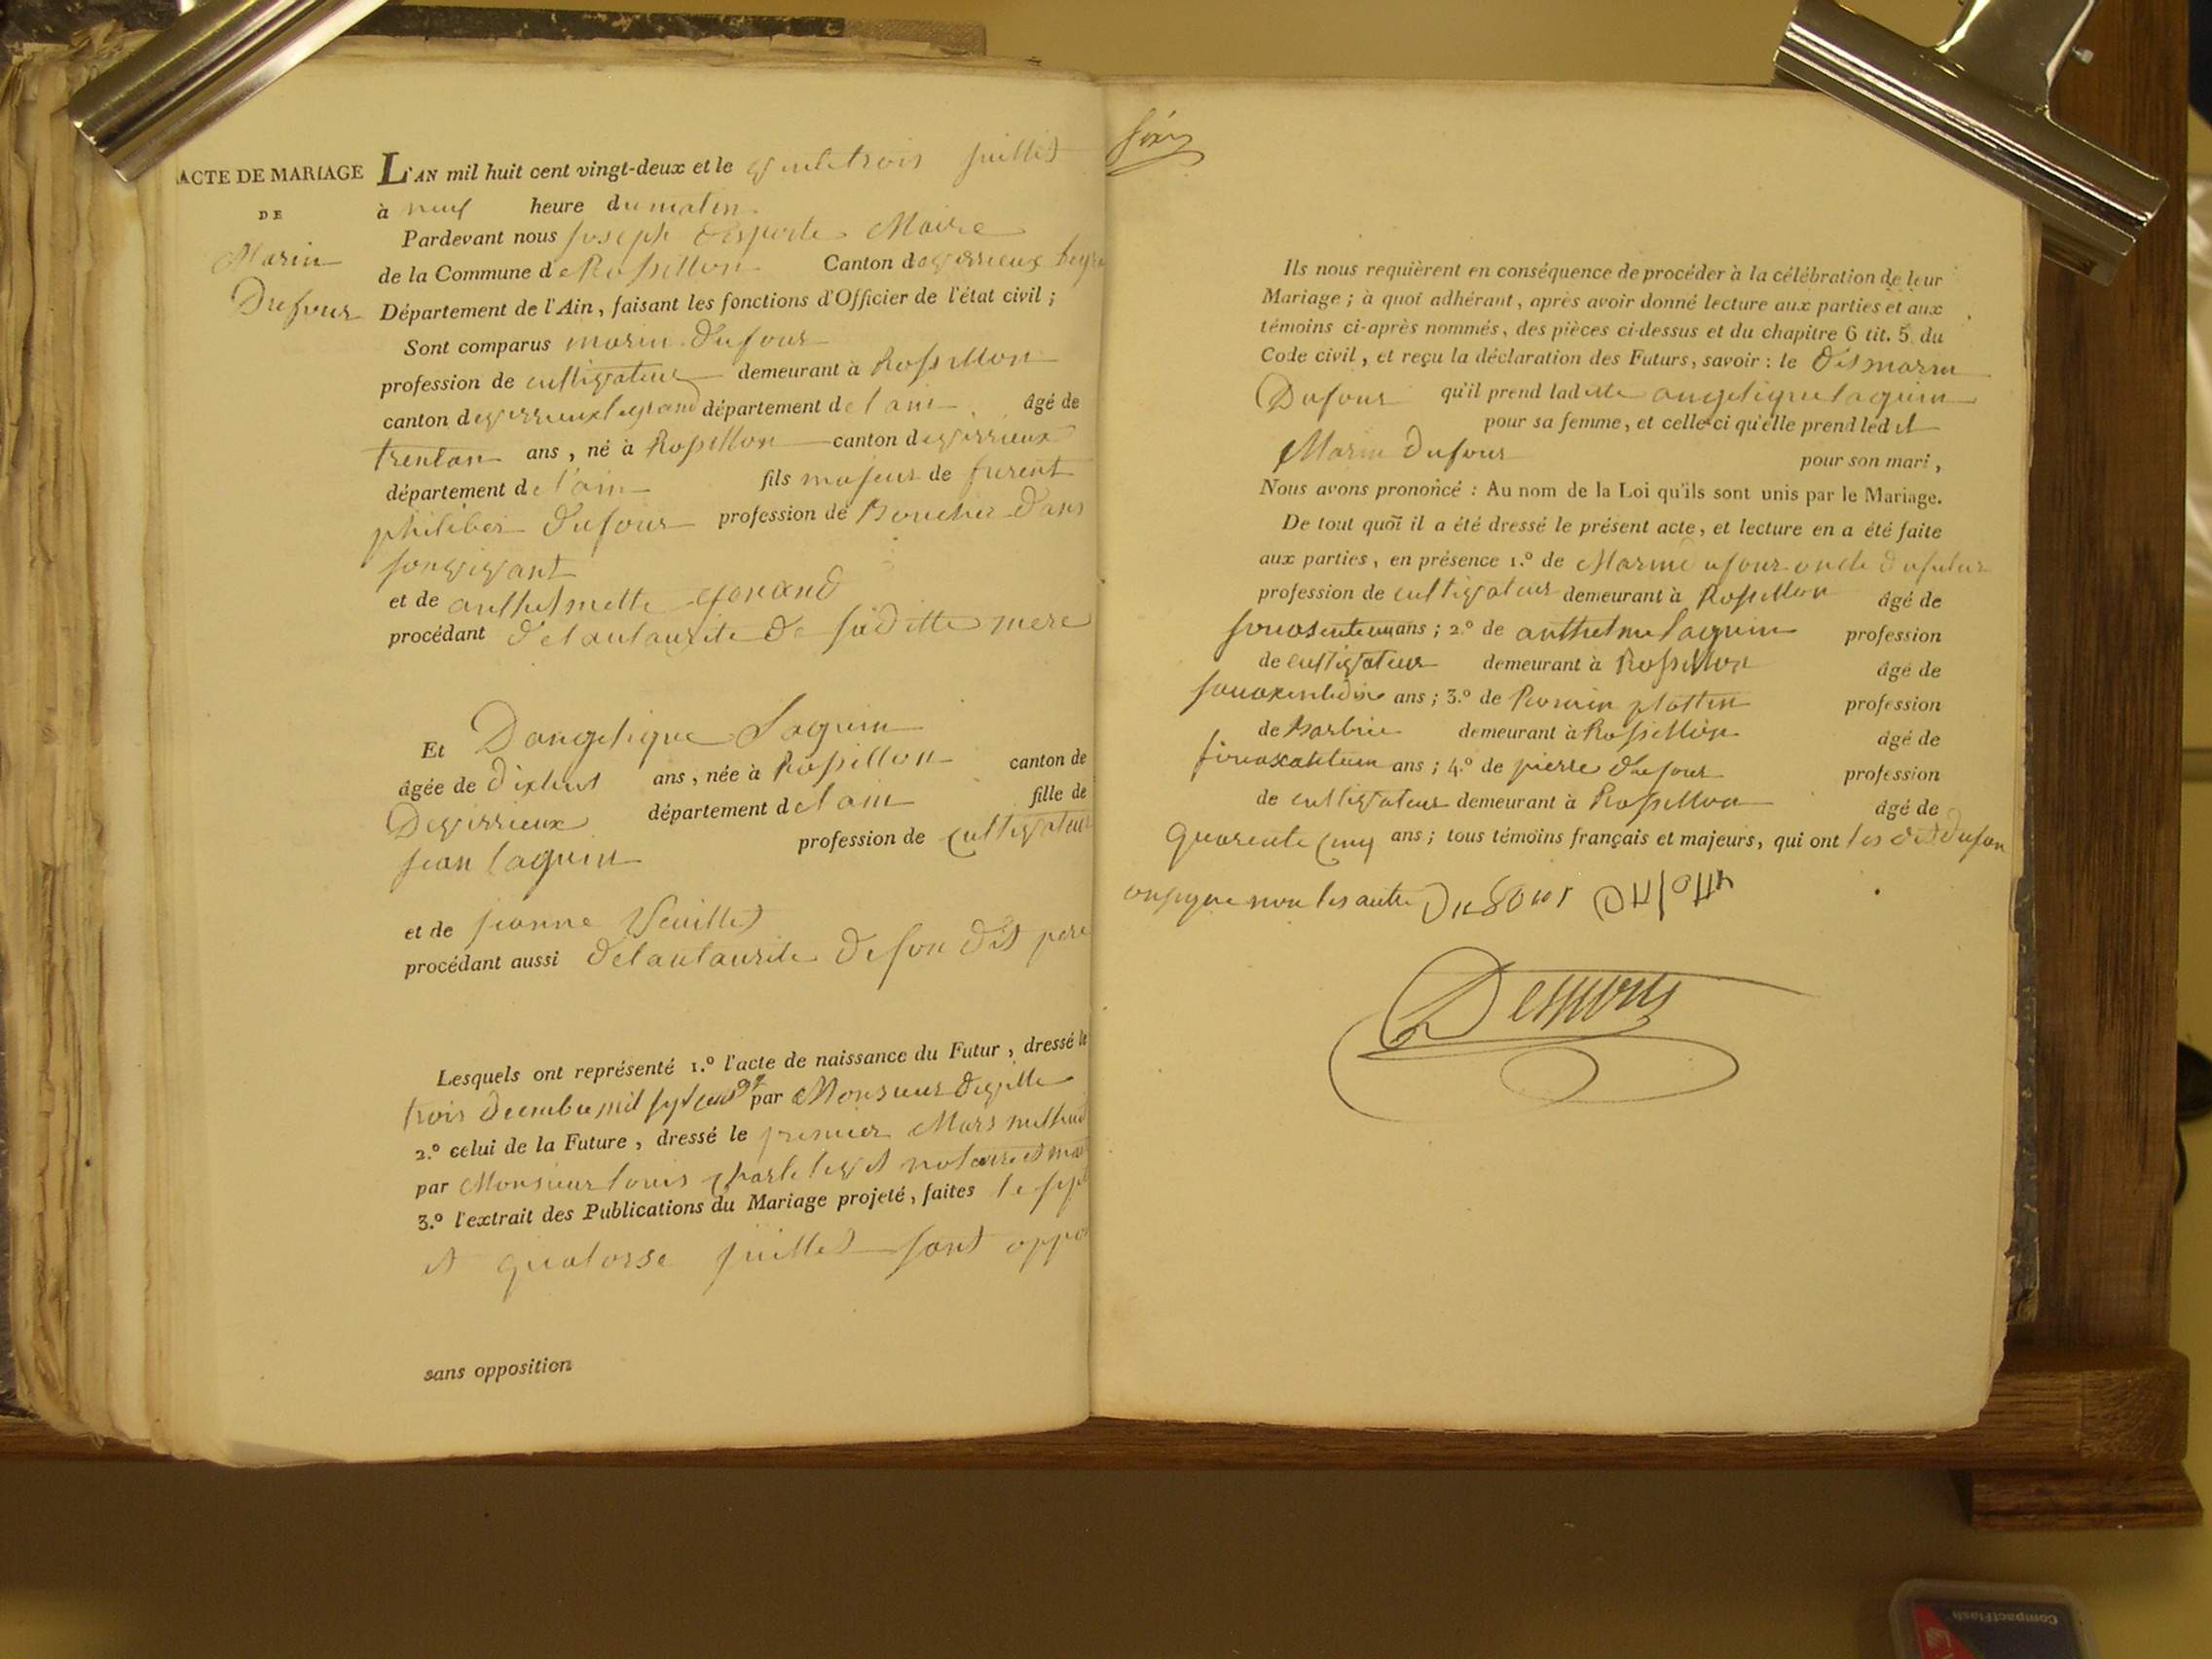 ACTE DE MARIAGE
DE
Marin
Dufour
L'AN mil huit cent vingt-deux et le juillet
à neuf heure du matin
Pardevant nous Joseph Desporte Maire
de la Commune de Rossillon Canton de virrieux
Département de l'Ain, faisant les fonctions d'Officier de l'état civil ;
Sont comparus marin Dufour
profession de cultivateur demeurant à Rossillon
canton de virrieux legrand département de l ain âgé de
ans, né à Rossillon canton de virrieux
département de l'ain fils majeur de furent
philiber Dufour profession de Boucher dans
son vivant
et de anthelmette
procédant de lautaurite de sa ditte mere
Et Dangelique Laquin
âgée de ans, née à Rossillon canton de
De virrieux département de l ain fille de
jean laquin profession de cultivateur
et de jeanne
procédant aussi de lautaurite de son dit pere
Lesquels ont représenté 1.º l'acte de naissance du Futur, dressé le
trois decembre mil sept cent par Monsieur
2.º celui de la Future, dressé le premier Mars
par Monsieur louis charle notaire et
3.º l'extrait des Publications du Mariage projeté, faites le
et quatorse juillet sans
sans opposition
Ils nous requièrent en conséquence de procéder à la célébration de leur
Mariage ; à quoi adhérant, après avoir donné lecture aux parties et aux
témoins ci-après nommés, des pièces ci-dessus et du chapitre 6 tit. 5 du
Code civil, et reçu la déclaration des Futurs, savoir : le dit marin
Dufour qu'il prend laditte angelique laquin
pour sa femme, et celle-ci qu'elle prend ledit
Marin Dufour pour son mari,
Nous avons prononcé : Au nom de la Loi qu'ils sont unis par le Mariage.
De tout quoi il a été dressé le présent acte, et lecture en a été faite
aux parties, en présence 1.º de Marin dufour oncle du futur
profession de cultivateur demeurant à Rossillon âgé de
ans ; 2.º de anthelme laquin profession
de cultivateur demeurant à Rossillon âgé de
ans ; 3.º de Romain plattin profession
de Barbier demeurant à Rossillon âgé de
ans ; 4.º de pierre Dufour profession
de cultivateur demeurant à Rossillon âgé de
quarente cinq ans ; tous témoins français et majeurs, qui ont les dit dufour
non les autre Dufour
Desporte
CompactFlash